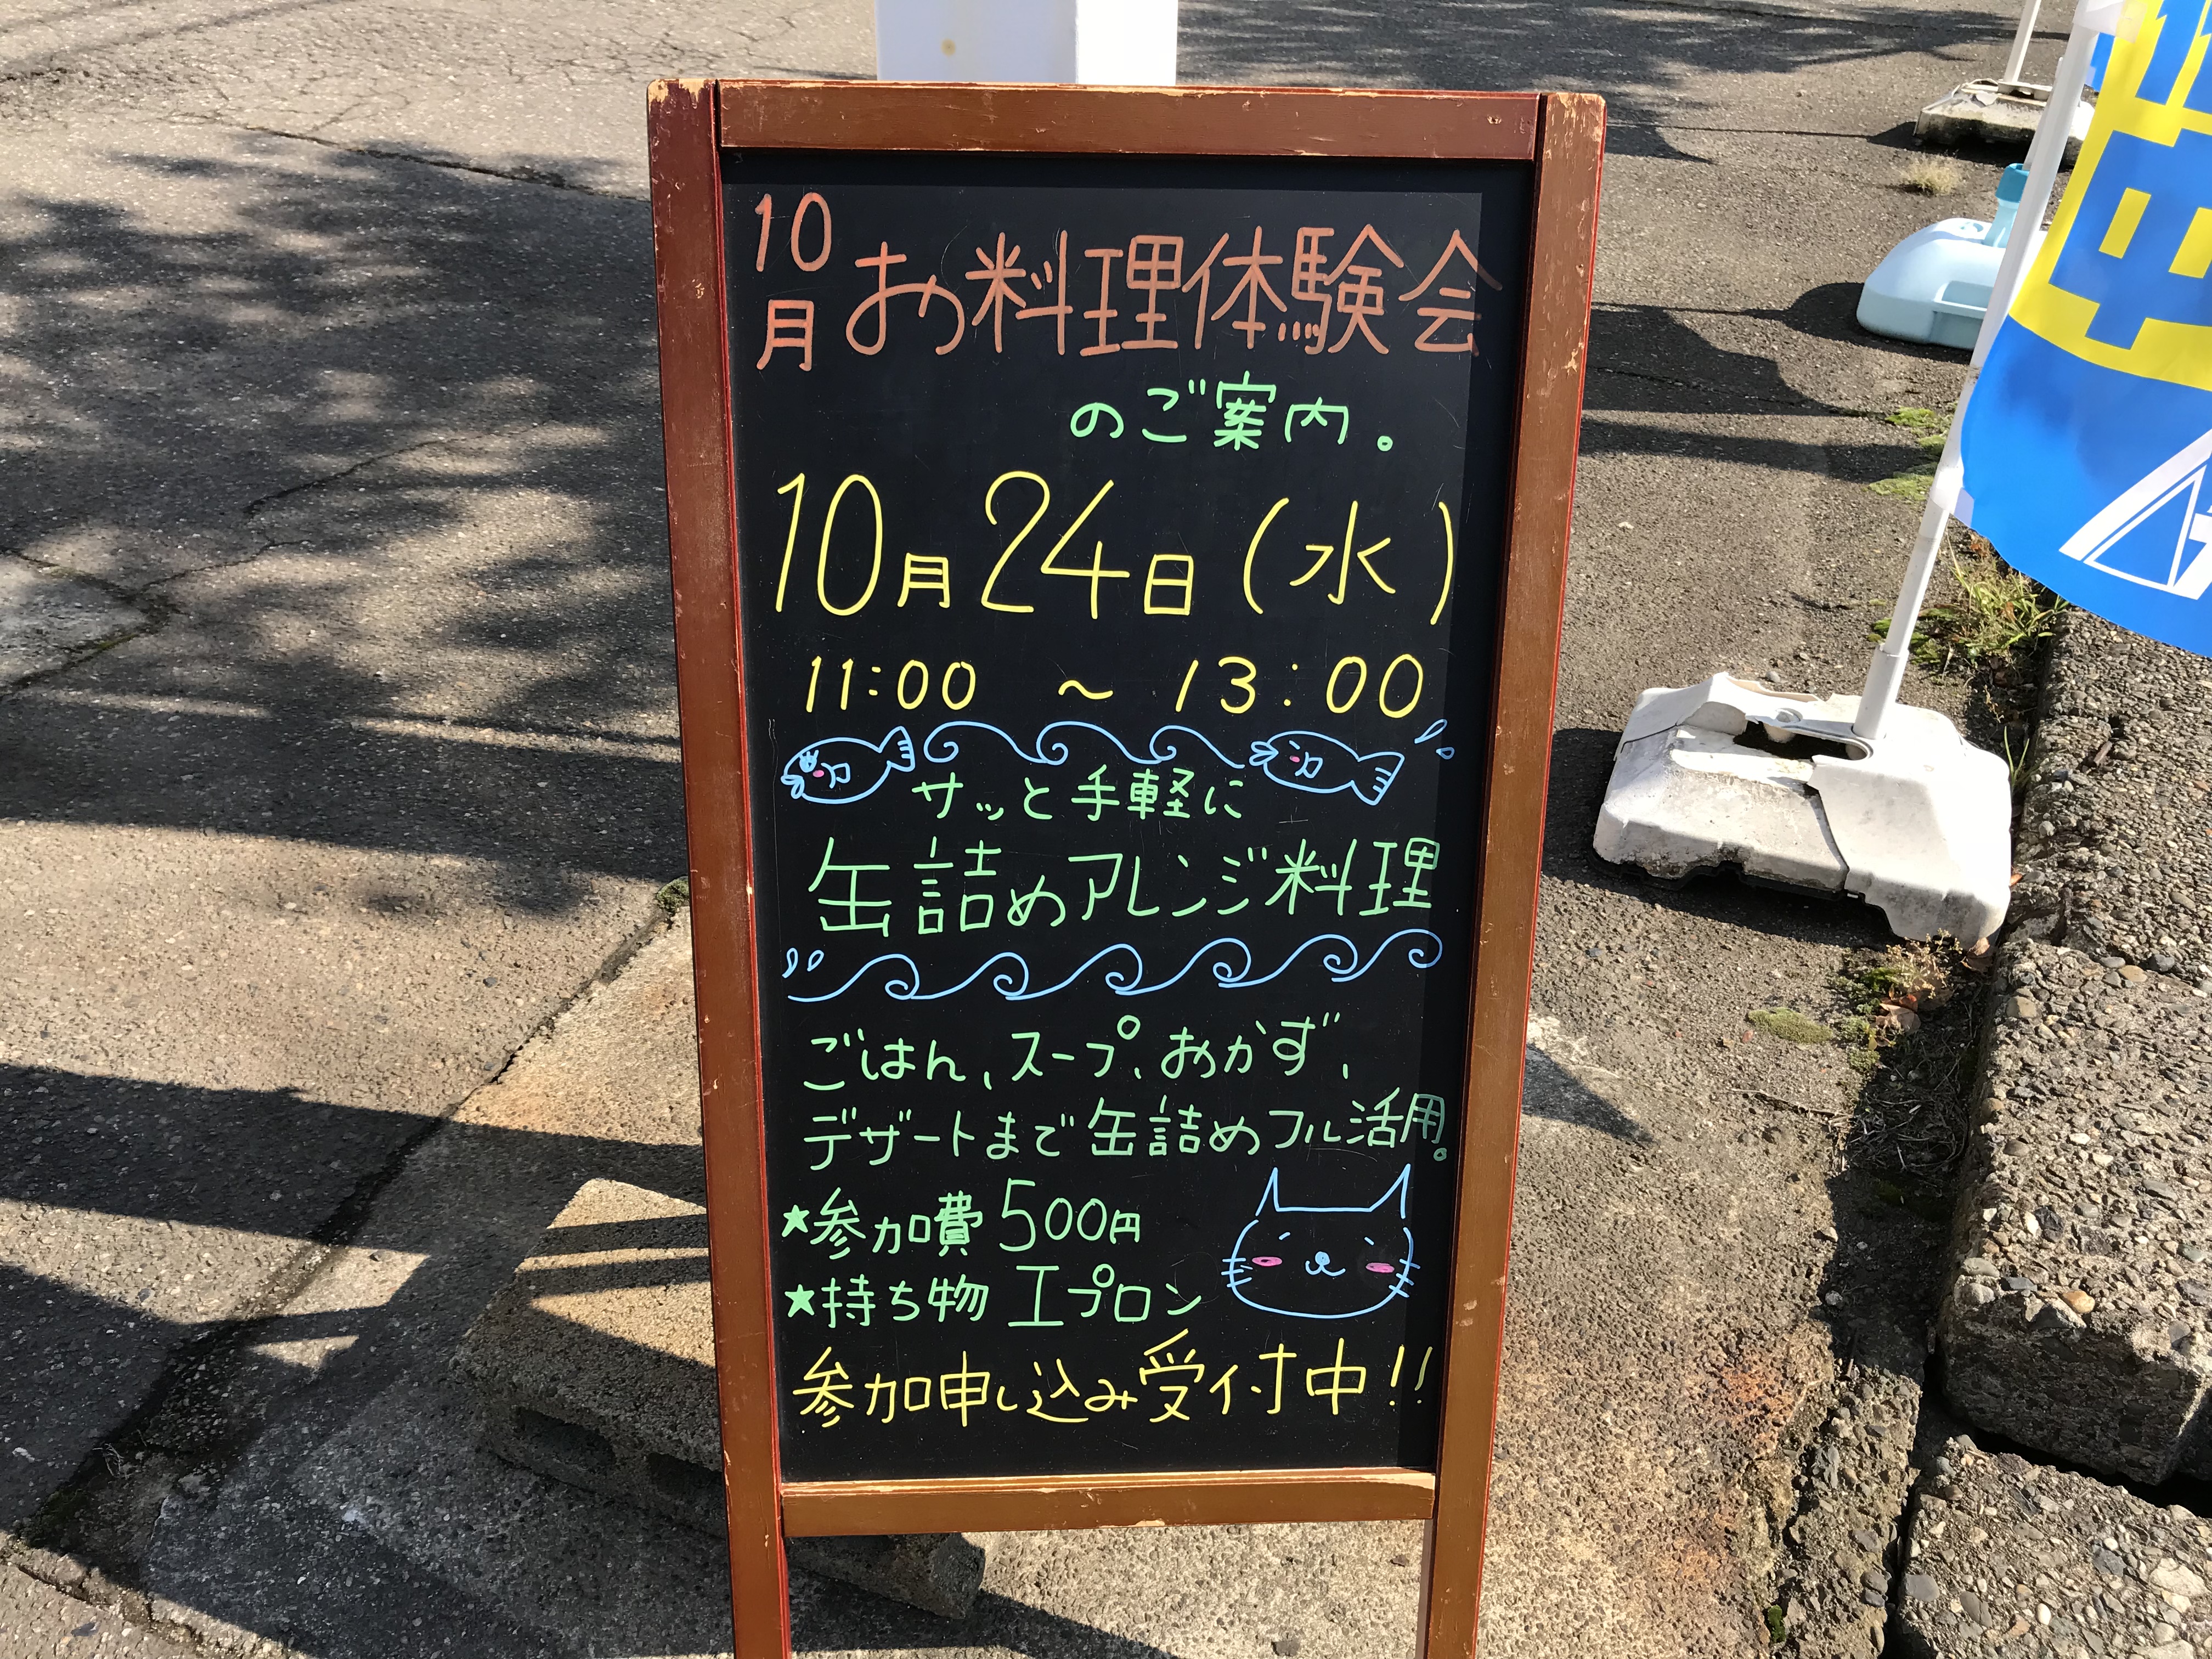 10月 お料理体験会
のご案内。
10月24日(水)
11:00 ~ 13:00
サッと手軽に
缶詰めアレンジ料理
ごはん、スープ、おかず、
デザートまで缶詰めフル活用。
★参加費 500円
★持ち物 エプロン
参加申し込み受付中!!